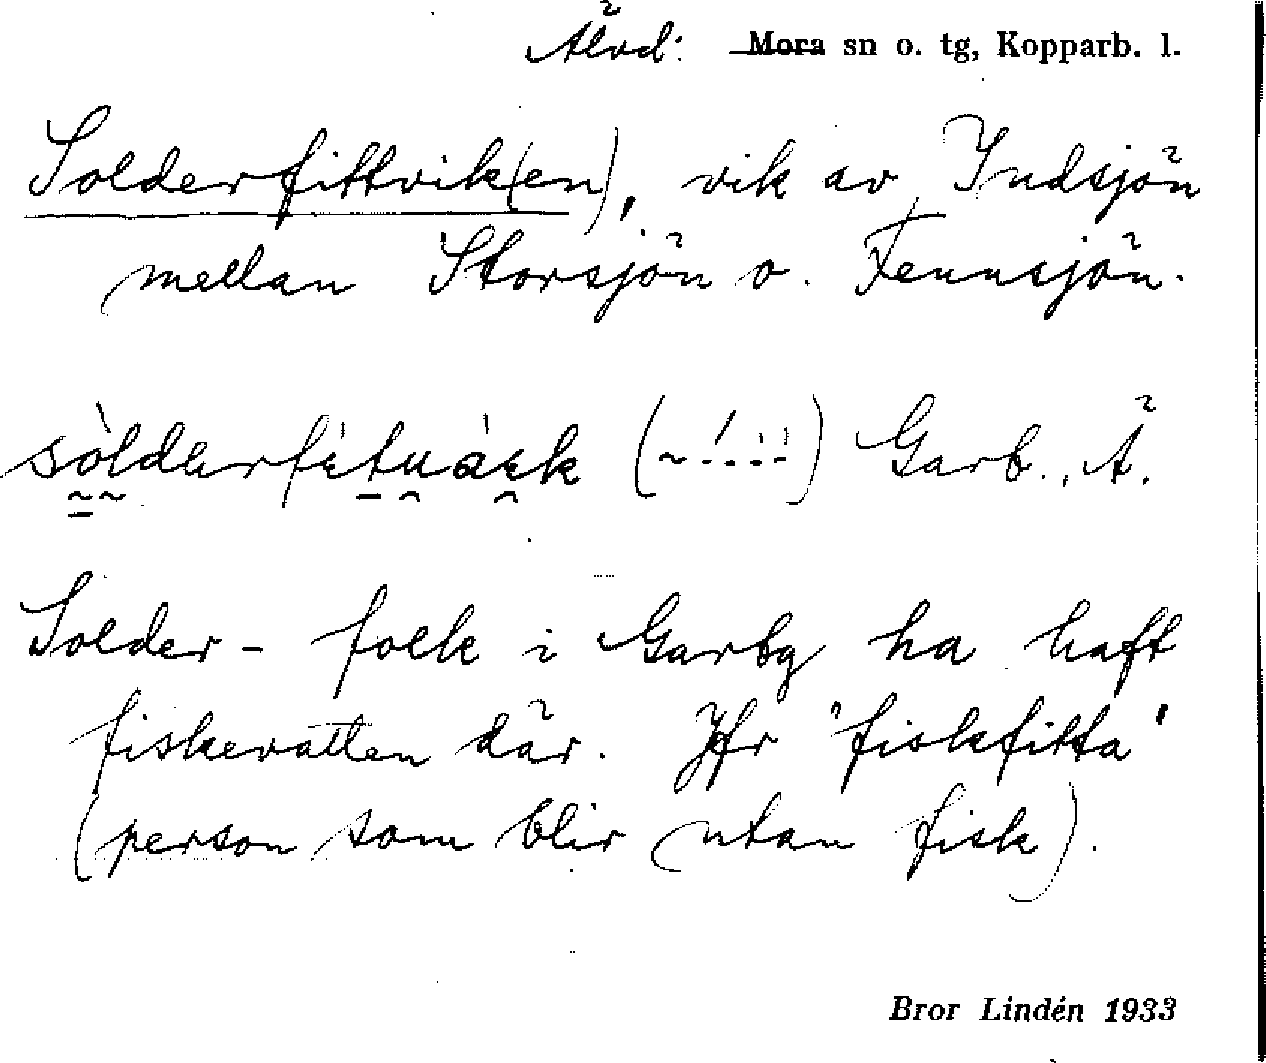 Älvd: Mora sn o. tg, Kopparb. l.
Solderfittvik(en), vik av Indsjön
mellan Storsjön o. Fennsjön.
Garb., Ä.
Solder- folk i Garbg ha haft
fiskevatten där. Jfr 'fiskfitta'
(person som blir utan fisk).
Bror Lindén 1933